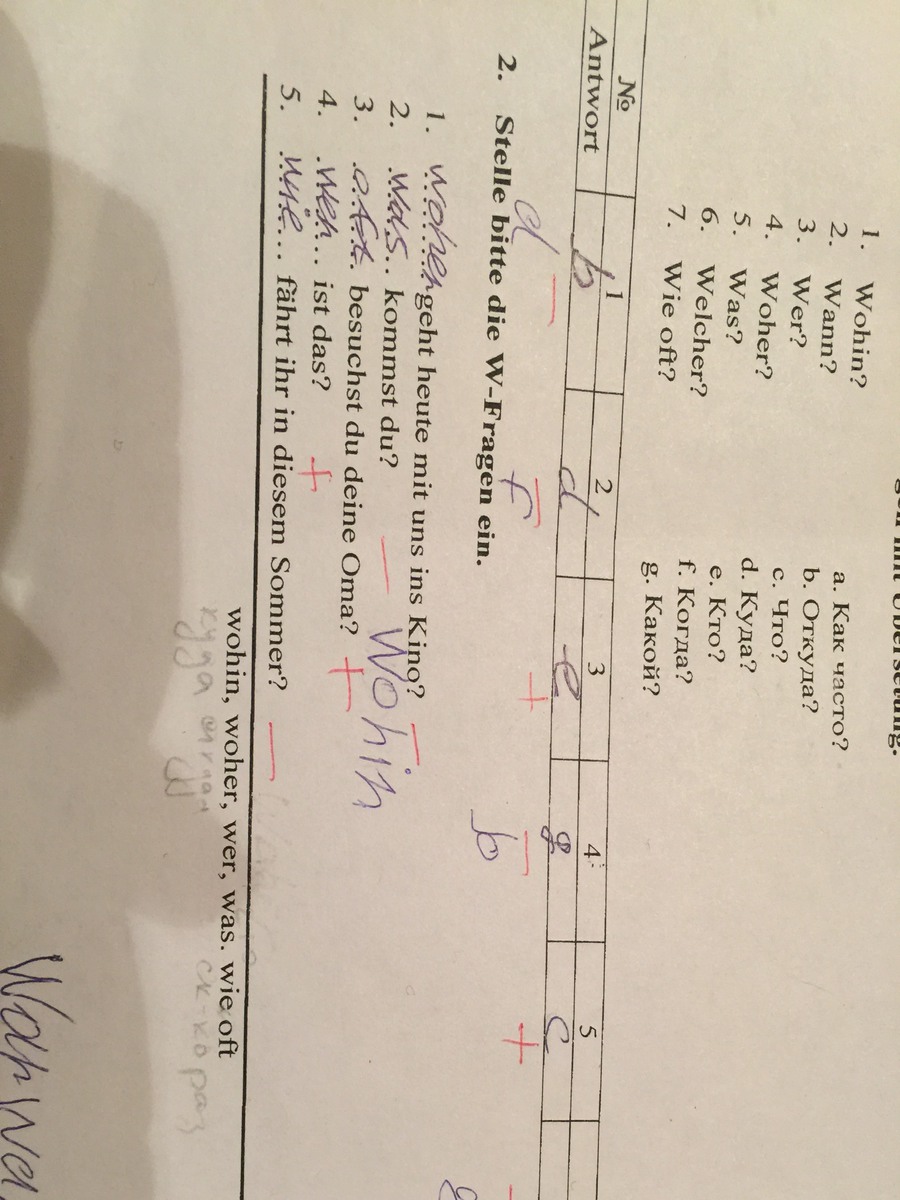 1. Wohin?
2. Wann?
3. Wer?
4. Woher?
5. Was?
6. Welcher?
7. Wie oft?
a. Как часто?
b. Откуда?
c. Что?
d. Куда?
e. Кто?
f. Когда?
g. Какой?
№ 1 2 3 4 5
Antwort b d e g c
d – f – + b – +
2. Stelle bitte die W-Fragen ein.
1. woher geht heute mit uns ins Kino? –
2. was kommst du? – Wohin
3. oft besuchst du deine Oma? +
4. wer ist das? +
5. wie fährt ihr in diesem Sommer? –
wohin, woher, wer, was. wie oft
куда откуда ск-ко раз